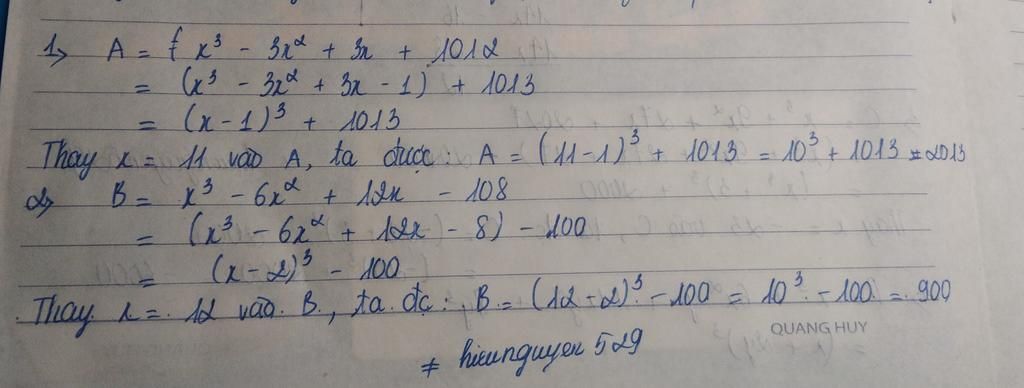 1> A = x³ - 3x² + 3x + 1012
= (x³ - 3x² + 3x - 1) + 1013
= (x-1)³ + 1013
Thay x = 11 vào A, ta được: A = (11-1)³ + 1013 = 10³ + 1013 = 2013
2> B = x³ - 6x² + 12x - 108
= (x³ - 6x² + 12x - 8) - 100
= (x-2)³ - 100
Thay x = 12 vào B, ta đc: B = (12-2)³ - 100 = 10³ - 100 = 900
QUANG HUY
# hieunguyen 529